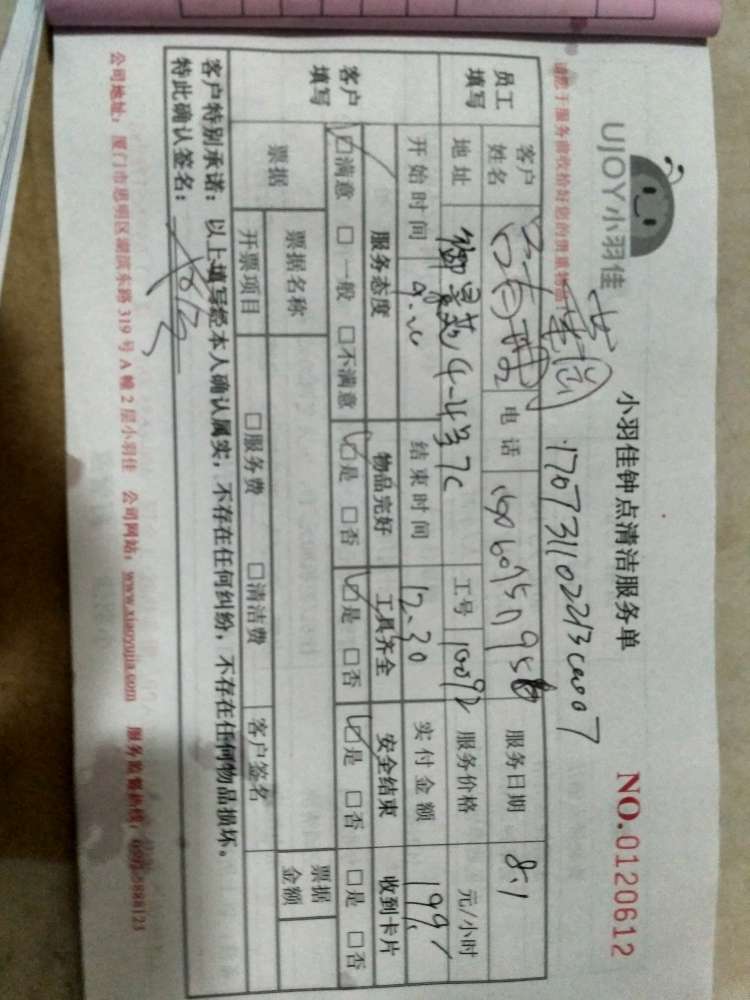 UJOY小羽佳
小羽佳钟点清洁服务单
NO.0120612
请您于服务前收拾好您的贵重物品
170731102213
员工填写
客户姓名
电话
服务日期 8.1
地址 御景苑 4-4号7C
工号 10092
服务价格 元/小时
开始时间
结束时间 12.30
实付金额 199
客户填写
服务态度 物品完好 工具齐全 安全结束 收到卡片
☑满意 □一般 □不满意 ☑是 □否 ☑是 □否 ☑是 □否 □是 □否
票据
票据名称
票据金额
开票项目 □服务费 □清洁费 客户签名
客户特别承诺：以上填写经本人确认属实，不存在任何纠纷，不存在任何物品损坏。
特此确认签名：
公司地址：厦门市思明区湖滨东路319号A幢2层小羽佳 公司网站：www.xiaoyujia.com 服务监督热线：